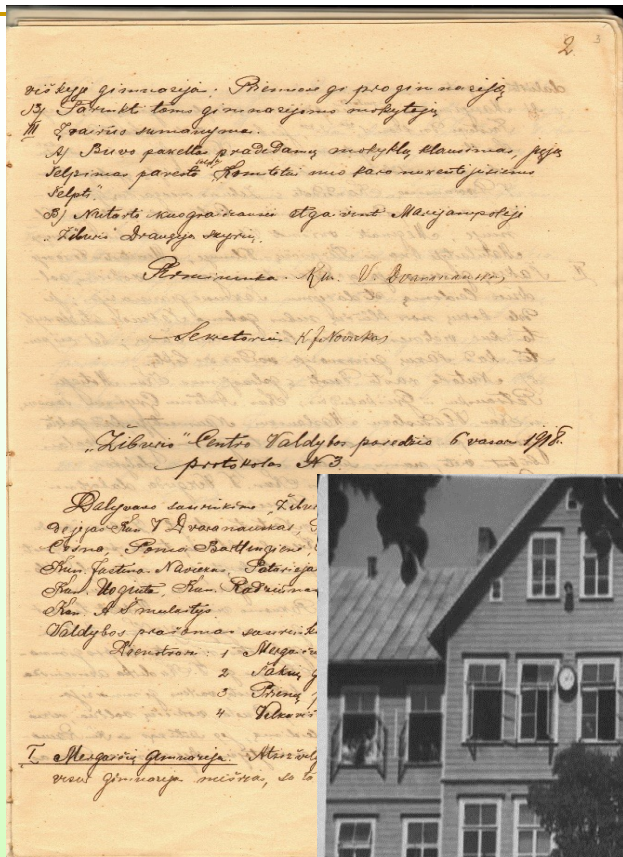 2 3
viškyje gimnazija. Prienuose gi progimnaziją
B) Surinkti toms gimnazijoms mokytojų
III Įvairūs sumanymai.
A) Buvo pakeltas pradedamų mokyklų klausimas, jųjų
šelpimas pavesta "Komitetui nuo karo nukentėjusiems
šelpti"
B) Nutarta kuogreičiausia atgaivint Marijampolėje
"Žiburio" Draugijos skyrių.
Pirmininkas. Kun. V. Dvaranauskas
Sekretorius K J Novickas
"Žiburio" Centro Valdybos posėdžio 6 vasar 1918.
protokolas N 3.
Dalyvavo susirinkime "Žibur
dėjėjas Kun V Dvaranauskas,
Česna, Ponia
Kun. Justinas Navickas,
Kun. Kun.
Kun. A Šmulkštys
Valdybos prašomas susirink
1 Mergaič
2 Šakių g
3 Prienų p
4 Vilkaviš
I. Mergaičių gimnazija. Atsižvelg
visus gimnazija